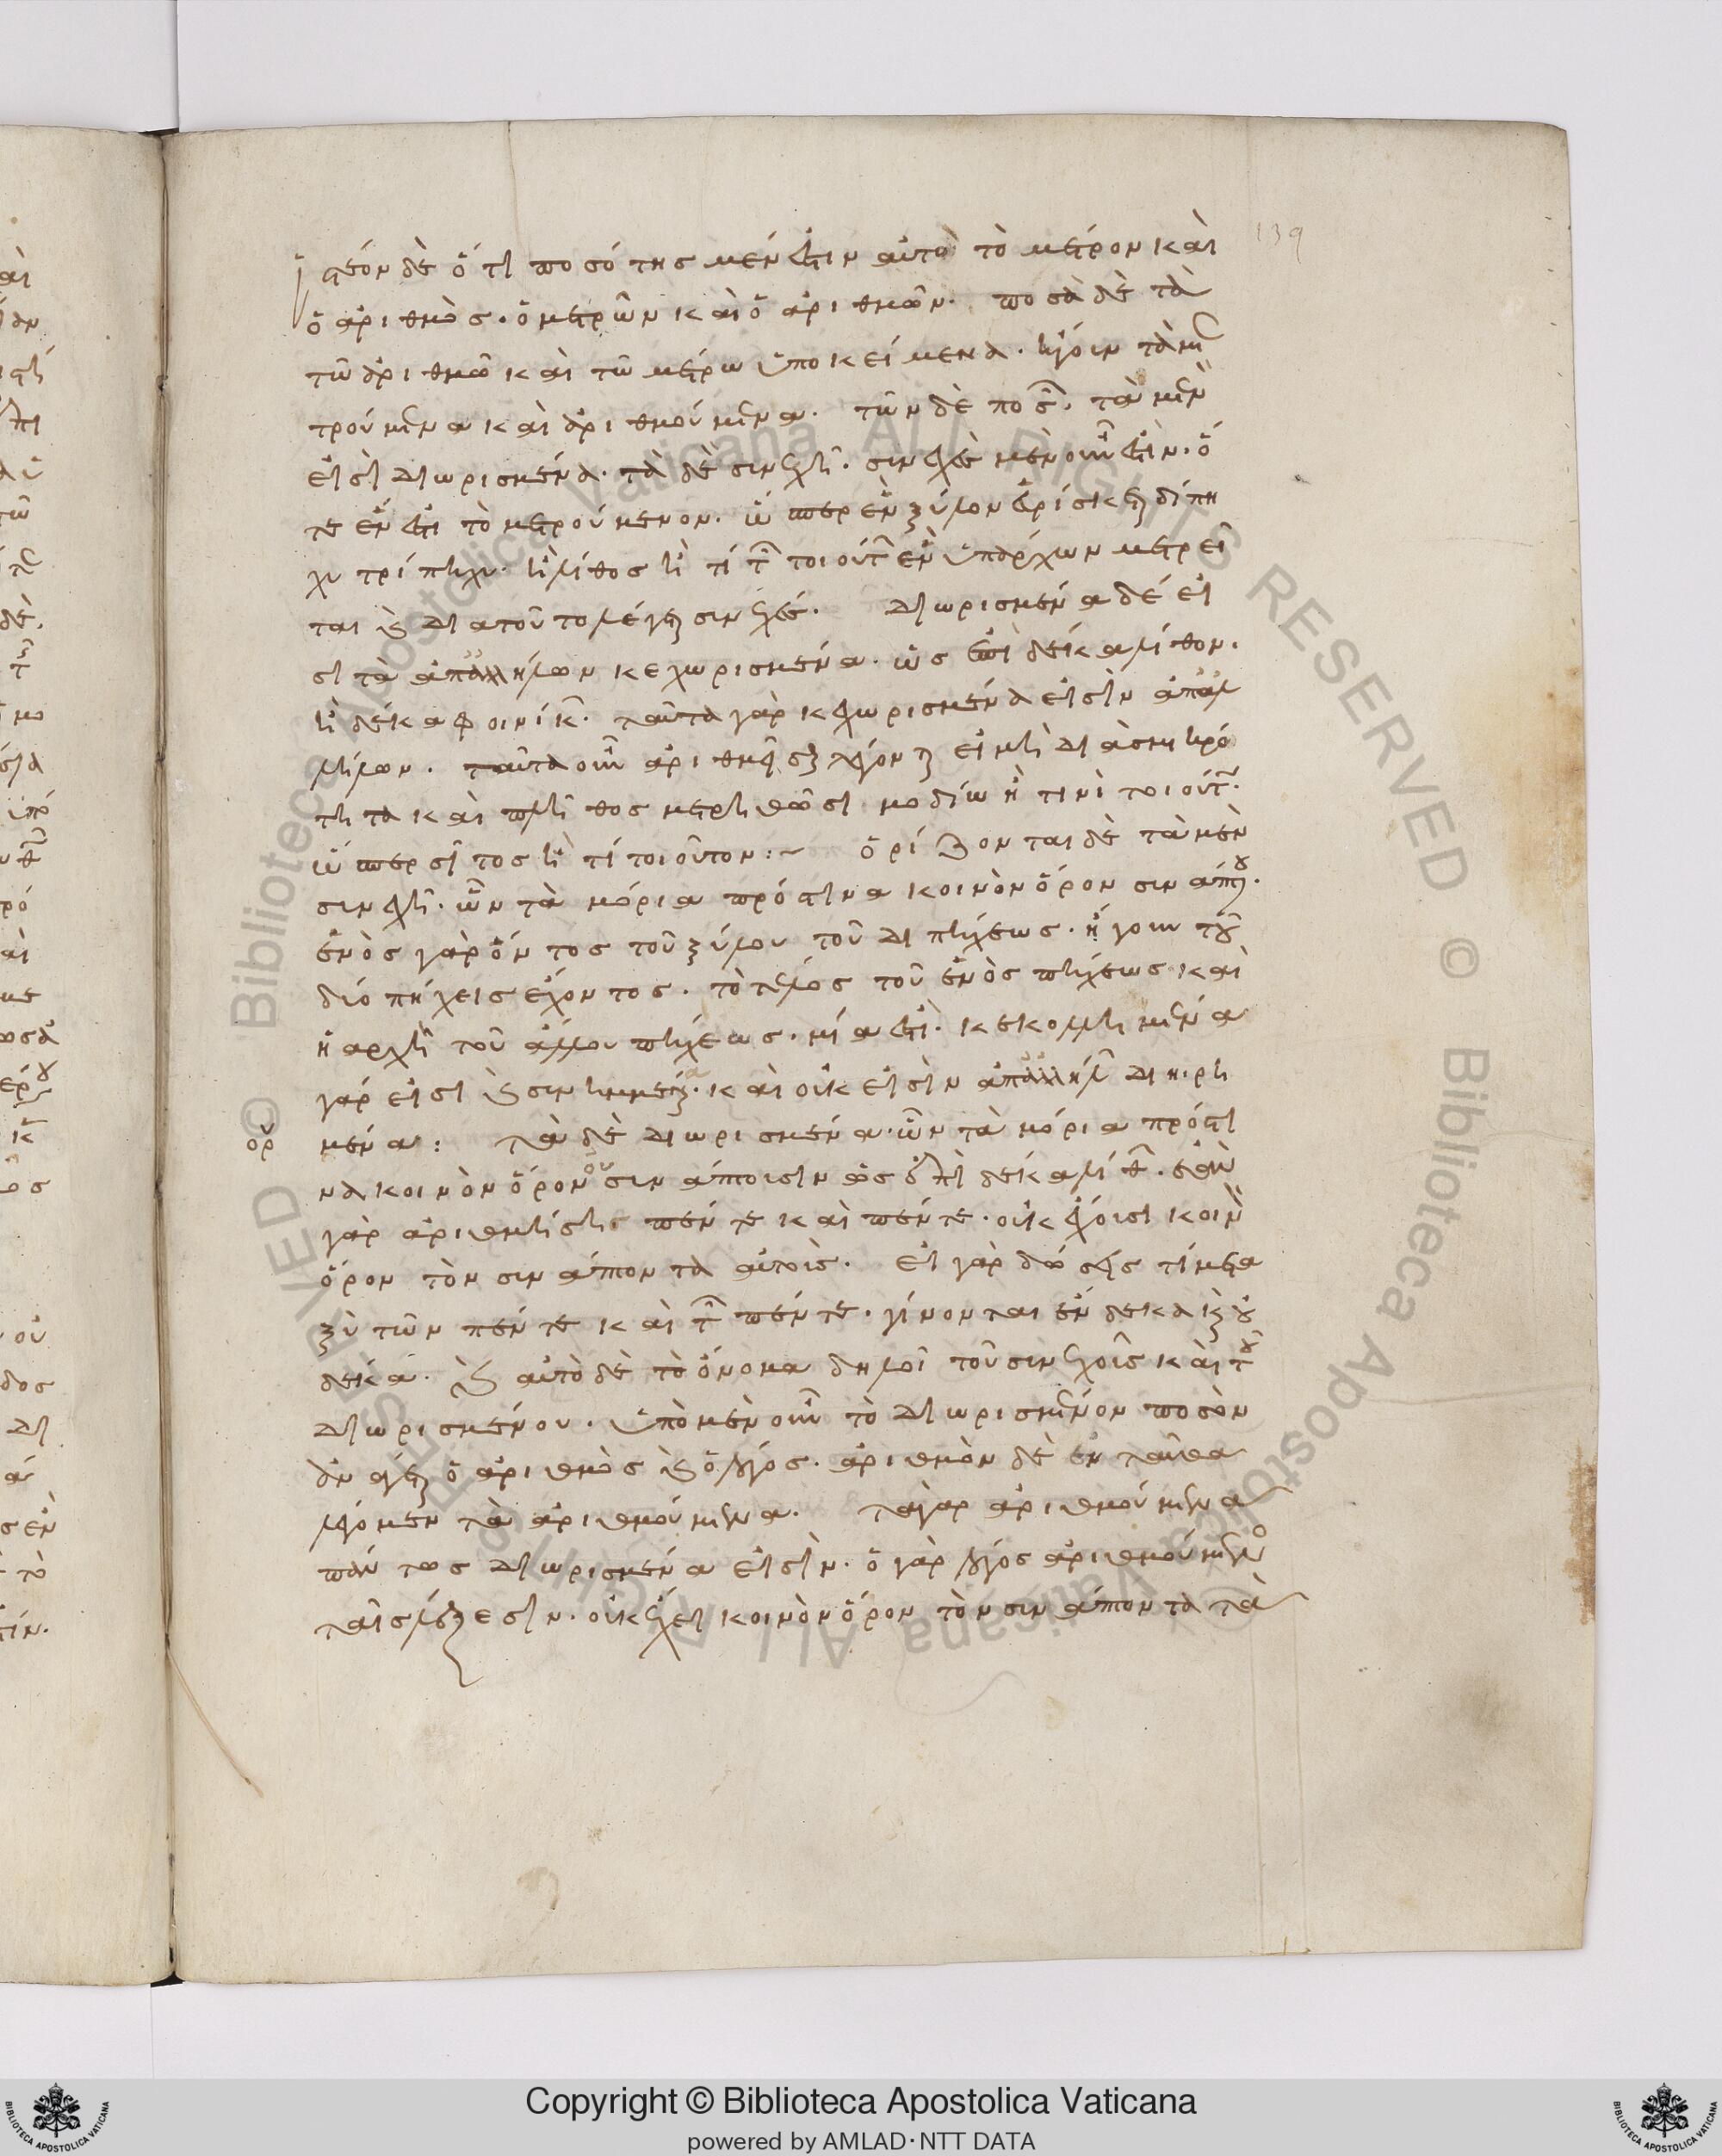 139
ἰστέον δὲ ὅτι ποσότης μέν ἐστιν αὐτὸ τὸ μέτρον καὶ
ὁ ἀριθμὸς· ὁ μετρῶν καὶ ὁ ἀριθμῶν· ποσὰ δὲ τὰ
τῶ ἀριθμῶ καὶ τῶ μέτρω ὑποκείμενα· ἤγουν τὰ με
τρούμενα καὶ ἀριθμούμενα· τῶν δὲ ποσῶν· τὰ μὲν
εἰσὶ διωρισμένα· τὰ δὲ συνεχῆ· συνεχὲς μὲν οὖν ἐστὶν· ὅ
τε ἕν ἐστι τὸ μετρούμενον· ὥσπερ ἓν ξύλον εὑρίσκεται δίπη
χυ τρίπηχυ· ἢ λίθος ἢ τί τῶν τοιούτων ἓν ὑπάρχων μετρεῖ
ται καὶ διατοῦτο λέγεται συνεχές· διωρισμένα δέ εἰ
σι τὰ ἀπαλλήλων κεχωρισμένα· ὡς ἐπὶ δέκα λίθων·
ἢ δέκα φοινίκων· ταῦτα γὰρ κεχωρισμένα εἰσὶν ἀπαλ
λήλων· ταῦτα οὖν ἀριθμεῖσθαι λέγονται εἰ μὴ διὰ σμικρό
τητα καὶ πλῆθος μετρηθῶσι μοδίω ἤ τινι τοιούτω·
ὥσπερ σῖτος ἤ τι τοιοῦτον :~ ὁρίζονται δὲ τὰ μὲν
συνεχῆ· ὧν τὰ μόρια πρός τινα κοινὸν ὅρον συνάπτουσιν·
ἑνὸς γὰρ ὄντος τοῦ ξύλου τοῦ διπήχεως· ἤγουν τοῦ
δύο πήχεις ἔχοντος· τὸ τέλος τοῦ ἑνὸς πήχεως καὶ
ἡ ἀρχὴ τοῦ ἄλλου πήχεως· μία ἐστὶ· κεκολλημένα
γάρ εἰσι καὶ συνημμένα· καὶ οὐκ εἰσὶν ἀπαλλήλων διῃρη
ὅρος μένα : τὰ δὲ διωρισμένα· ὧν τὰ μόρια πρός τι
να κοινὸν ὅρον οὐ συνάπτουσιν ὡς ἐπὶ δέκα λίθων· ἐὰν
γὰρ ἀριθμήσης πέντε καὶ πέντε· οὐκ ἔχουσι κοινὸν
ὅρον τὸν συνάπτοντα αὐτοῖς· εἰ γὰρ δώσεις τί μετα
ξὺ τῶν πέντε καὶ τῶν πέντε· γίνονται ἕνδεκα καὶ οὐ
δέκα· καὶ αὐτὸ δὲ τὸ ὄνομα δηλοῖ τοῦ συνεχοῦς καὶ τοῦ
διωρισμένου· ὑπὸ μὲν οὖν τὸ διωρισμένον ποσὸν
ἀνάγεται ὁ ἀριθμὸς καὶ ὁ λόγος· ἀριθμὸν δὲ ἐνταῦθα
λέγομεν τὰ ἀριθμούμενα· τὰ γὰρ ἀριθμούμενα
πάντως διωρισμένα εἰσὶν· ὁ γὰρ λόγος ἀριθμούμενος
ταῖς λέξεσιν· οὐκ ἔχει κοινὸν ὅρον τὸν συνάπτοντα τὰ
Copyright © Biblioteca Apostolica Vaticana
powered by AMLAD·NTT DATA